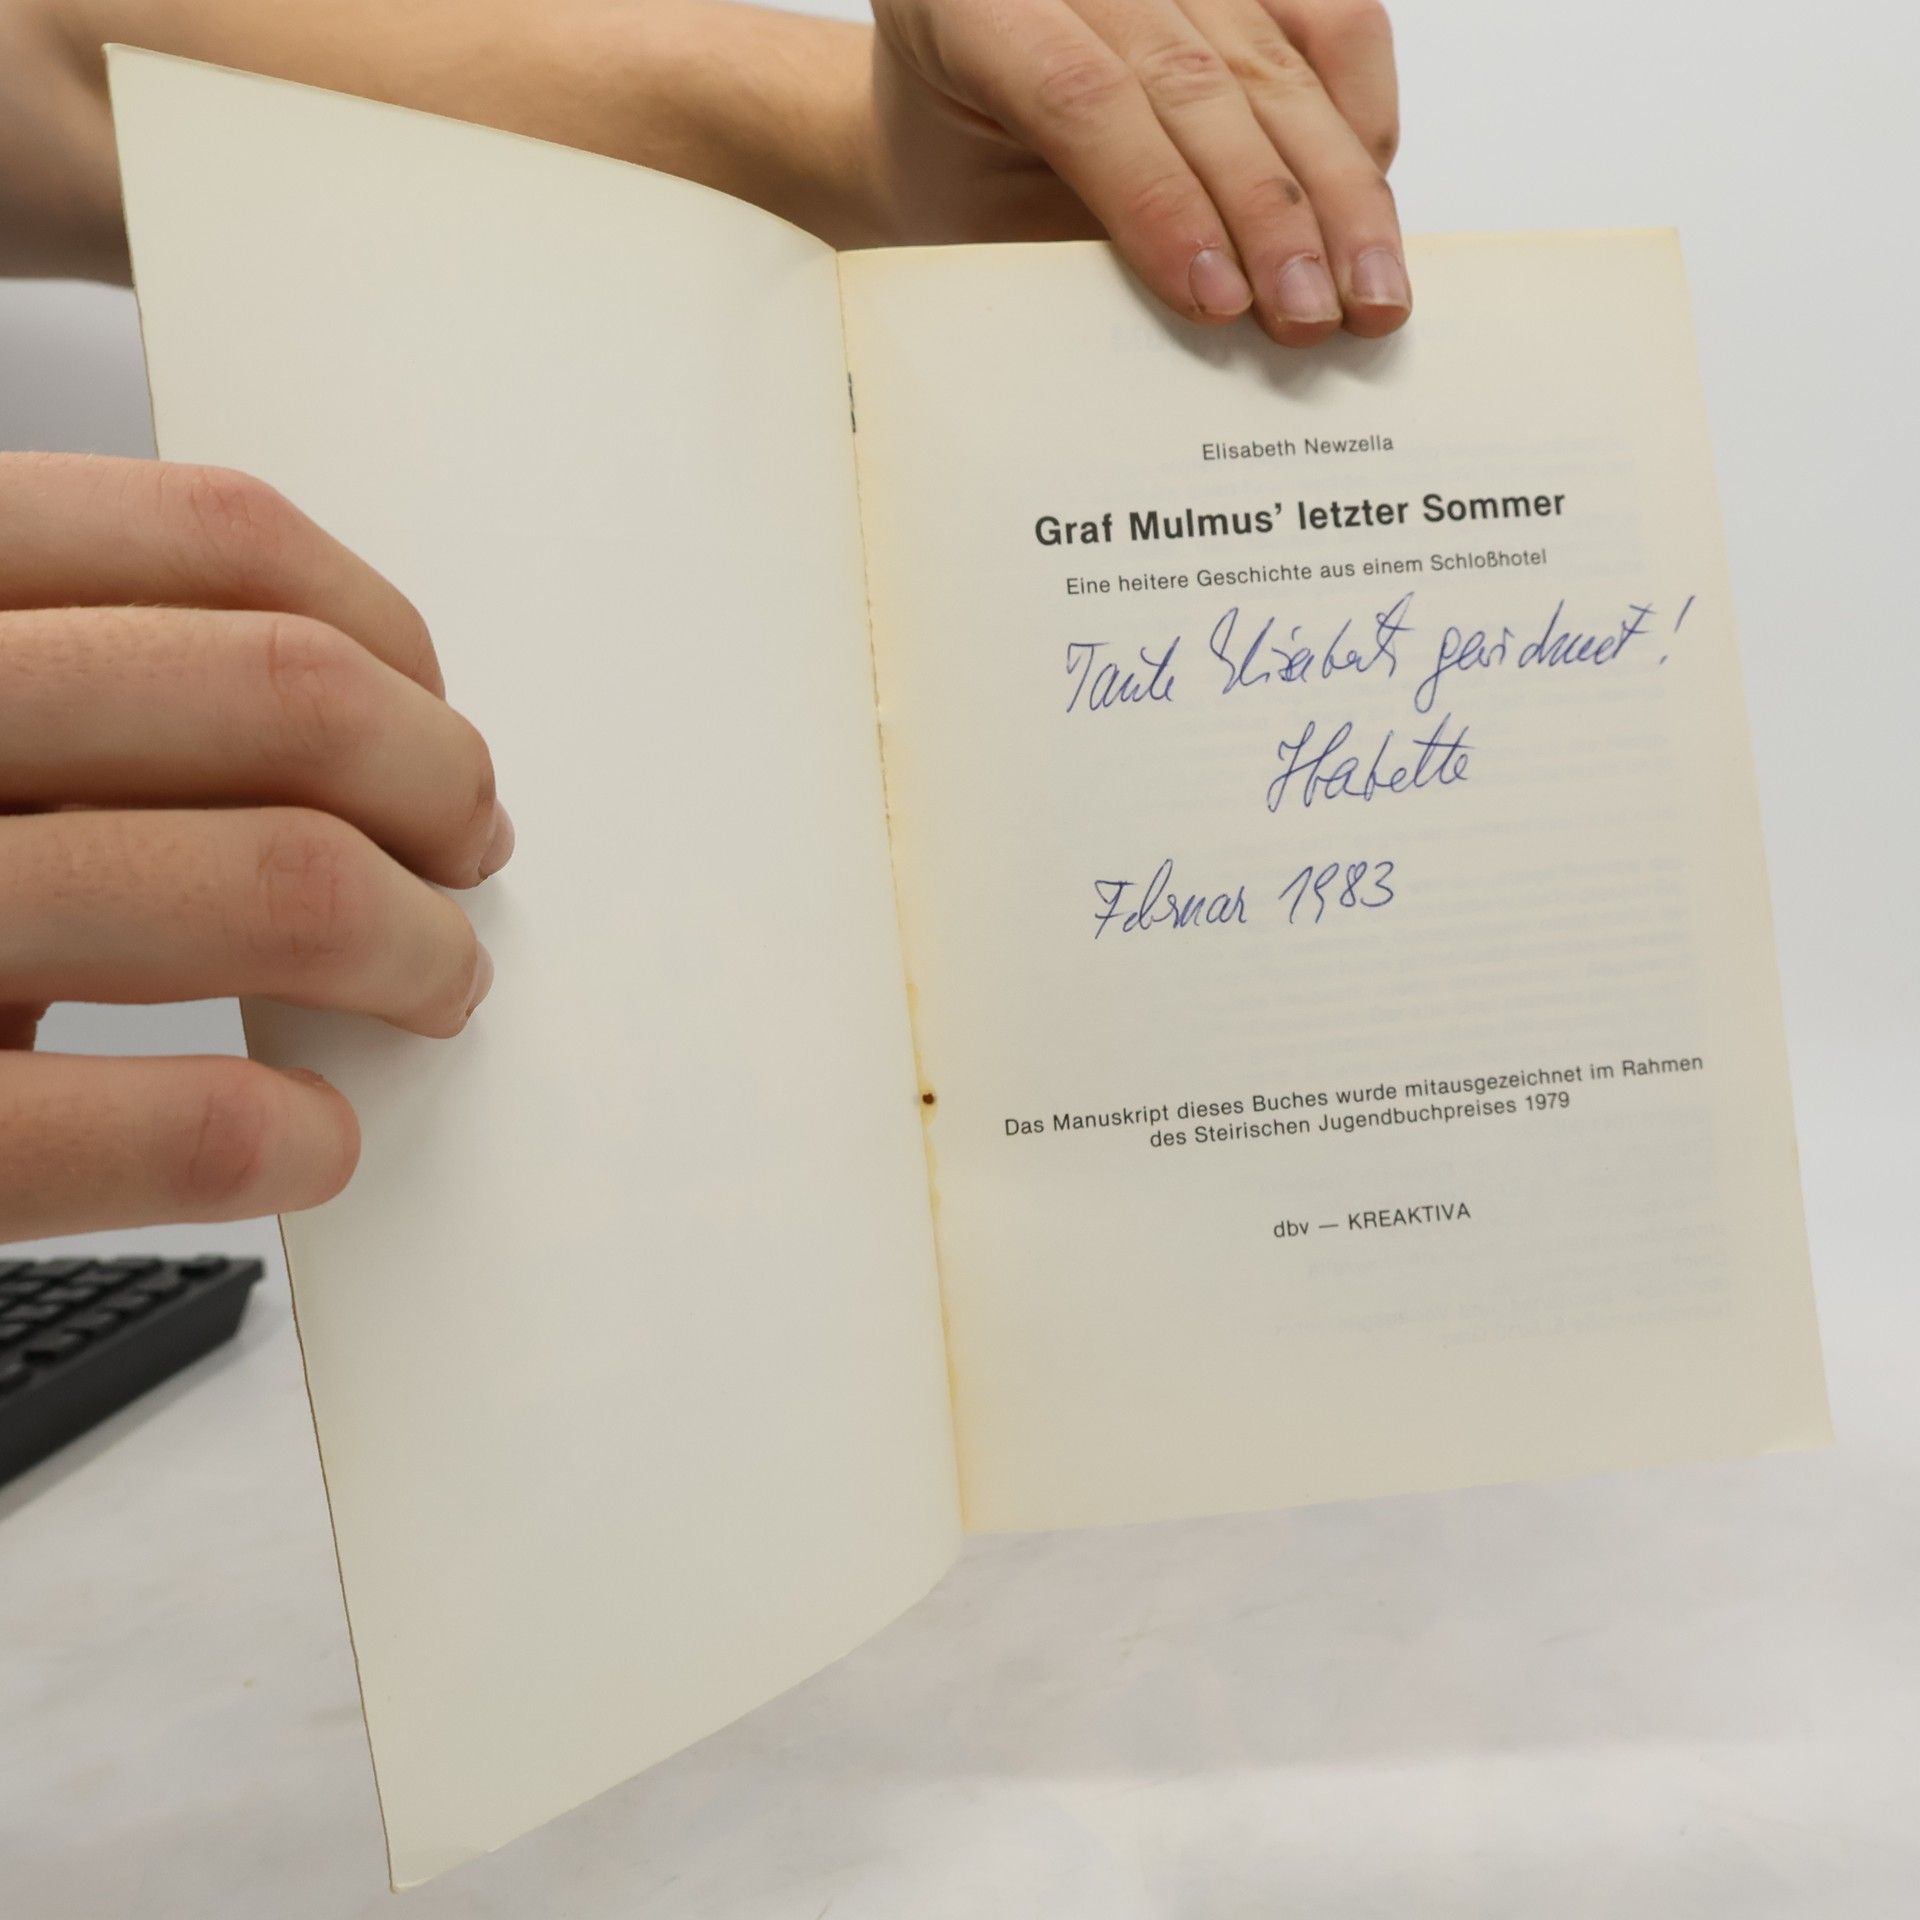 Elisabeth Newzella
Graf Mulmus’ letzter Sommer
Eine heitere Geschichte aus einem Schloßhotel
Tante Elisabeth gewidmet!
Februar 1983
Das Manuskript dieses Buches wurde mitausgezeichnet im Rahmen
des Steirischen Jugendbuchpreises 1979
dbv — KREAKTIVA